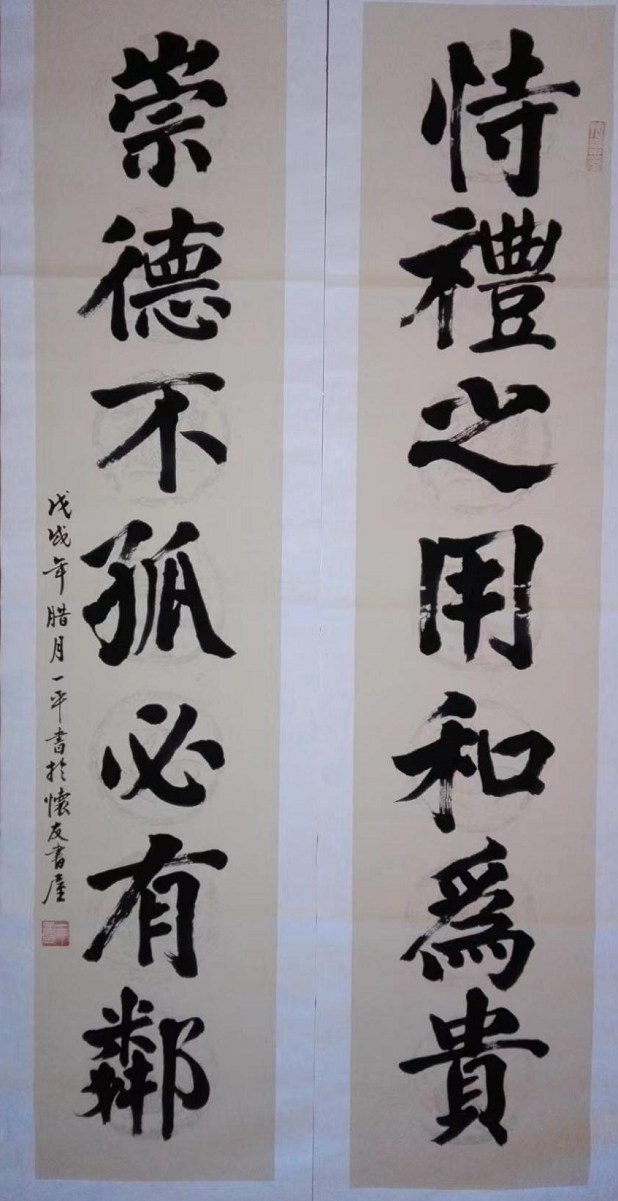 恃禮之用和為貴
崇德不孤必有鄰
戊戌年腊月一平書於懷友書屋